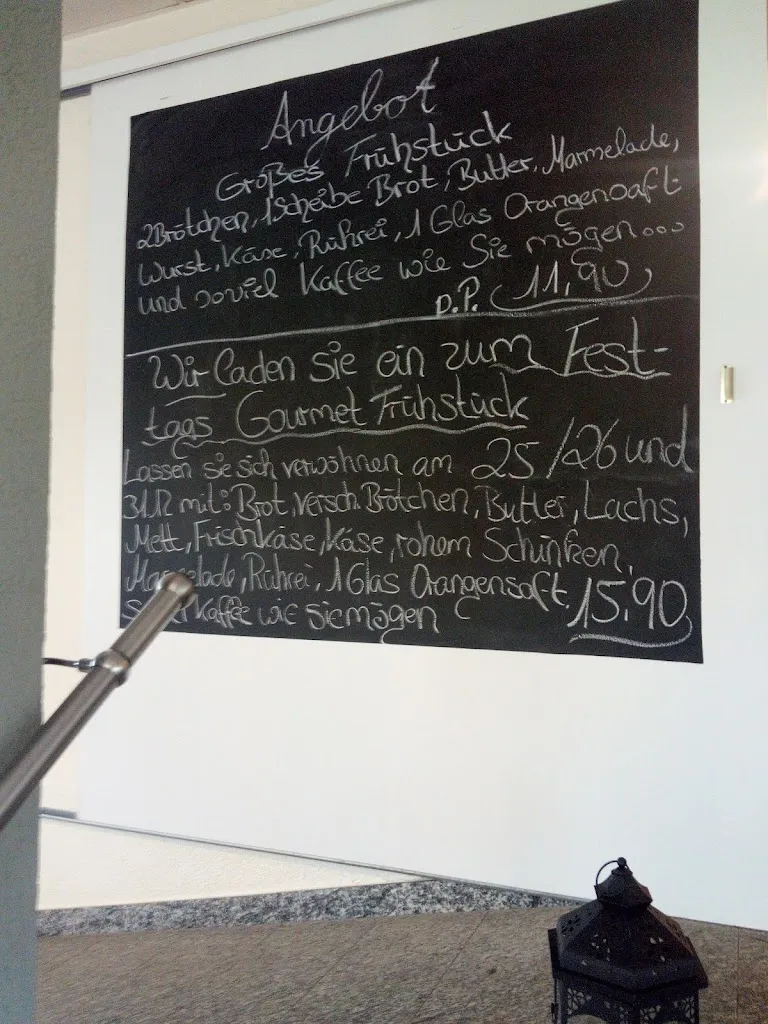 Angebot
Großes Frühstück
2 Brötchen, 1 Scheibe Brot, Butter, Marmelade,
Wurst, Käse, Rührei, 1 Glas Orangensaft
und soviel Kaffee wie Sie mögen...
p.P. 11,90
Wir Laden sie ein zum Fest-
tags Gourmet Frühstück
Lassen sie sich verwöhnen am 25/26 und
31.12 mit: Brot, versch. Brötchen, Butter, Lachs,
Mett, Frischkäse, Käse, rohem Schinken,
Rührei, 1 Glas Orangensaft, 15,90
Kaffee wie Sie mögen